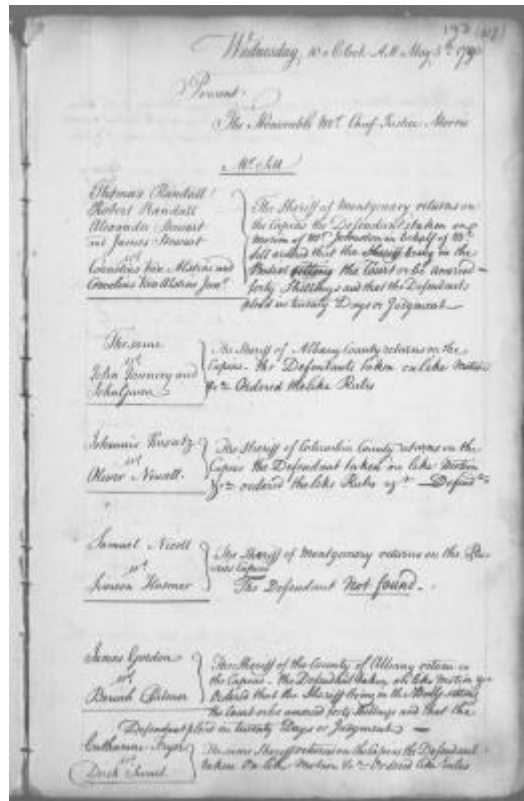 Wednesday, 10 o Clock A.M. May 5th 1790
Present.
The Honorable Mr. Chief Justice Morris
Mr. Sill
Thomas Randall
Robert Randall
Alexander Stewart
and James Stewart
vs
Cornelius Van Alstine and
Cornelius Van Alstine Junr.
The Sheriff of Montgomery returns on
the Capias the Defendants taken on
motion of Mr. Johnston in behalf of Mr.
Sill ordered that the Sheriff bring in the
sitting the Court or be amerced
forty Shillings and that the Defendants
plead in twenty Days or Judgment
The same
vs
John and
John
The Sheriff of Albany County returns on the
Capias the Defendants taken on like Motion
&c Ordered the like Rules
Johannis
vs
Oliver Newell.
The Sheriff of Columbia County returns on the
Capias the Defendant taken on like Motion
&c ordered the like Rules Defend
Samuel Nicoll
vs
The Sheriff of Montgomery returns on the
Capias
The Defendant Not found.
James Gordon
vs
The Sheriff of the County of Albany returns on
the Capias the Defendant taken on like Motion &c
Ordered that the Sheriff bring in the Body sitting
the Court or be amerced forty Shillings and that the
Defendant plead in twenty Days or Judgment
Catharine
vs
The same Sheriff returns on the Capias the Defendant
taken On like Motion &c Ordered like Rules